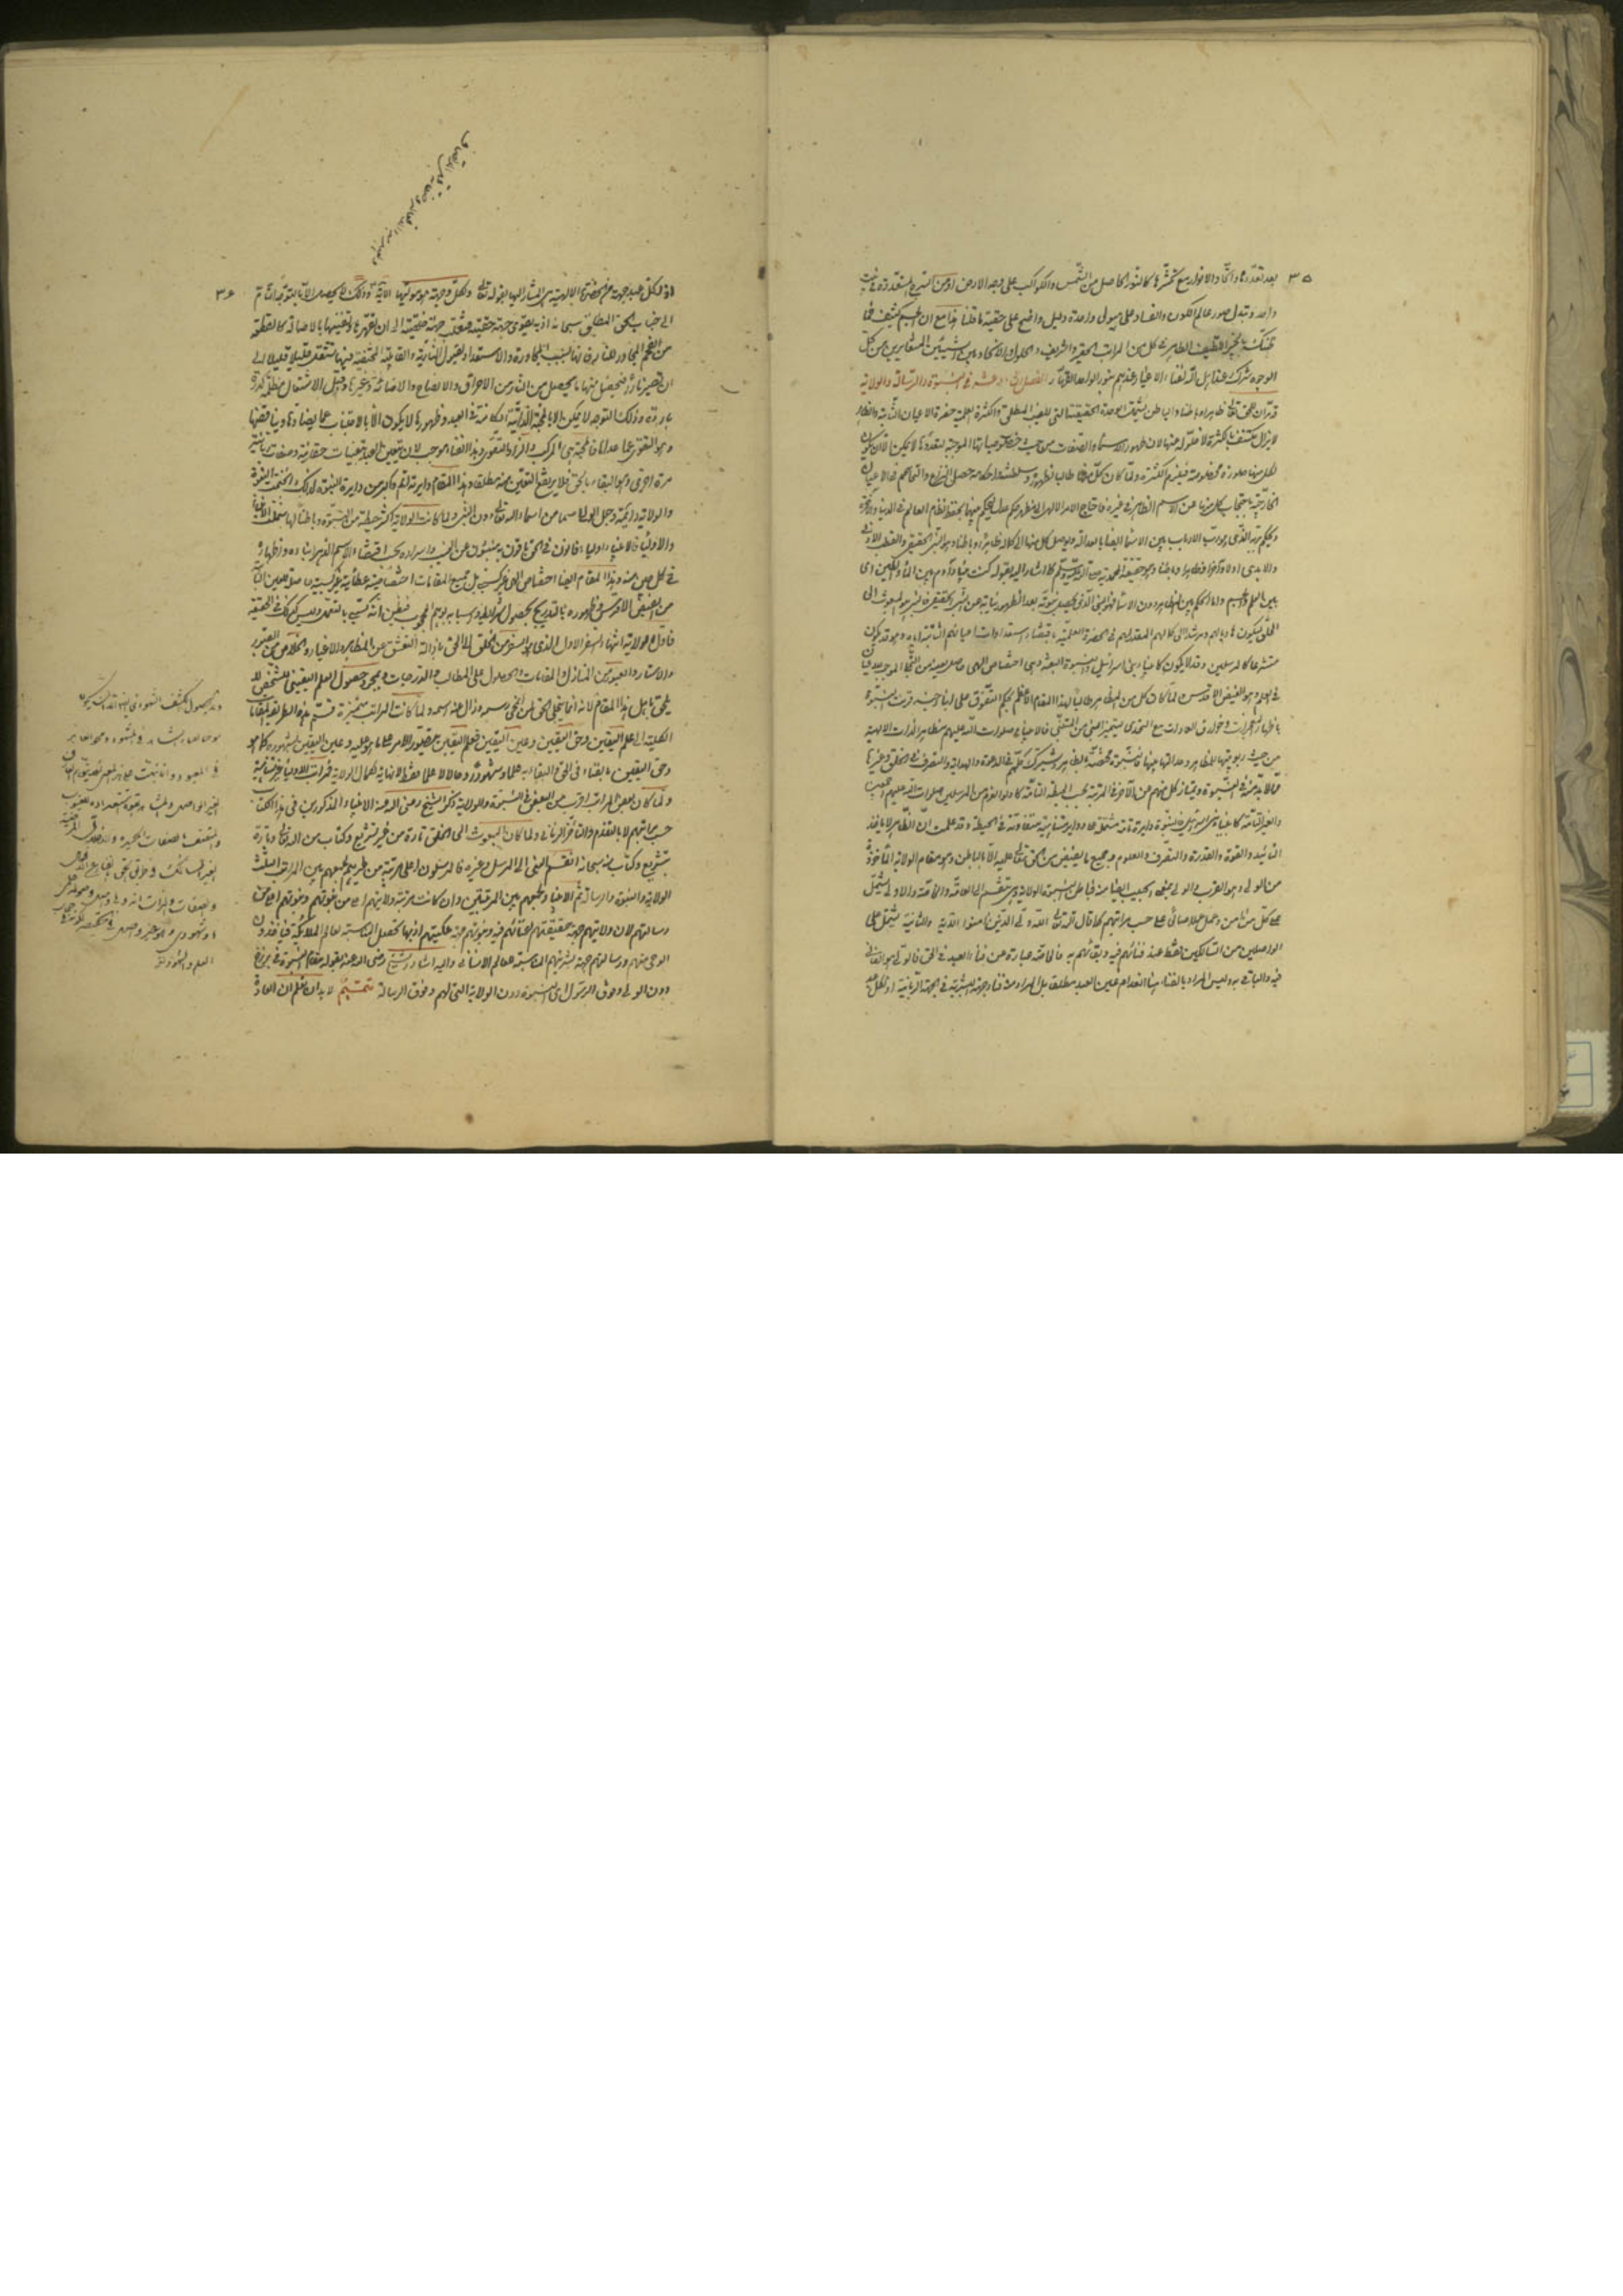 ٣٥
بعد تعددها واتحاد الانوار مع تكثرها كالنور الحاصل من الشمس والكواكب على وجه الارض او من السرج المتعددة في بيت
واحد وتبدل صور عالم الكون والفساد على هيولى واحدة دليل واضح على حقية ما قلنا هذا مع ان الجسم كثيف فما
ظنك بالخبير اللطيف الظاهر في كل من المراتب الحقير والشريف والحلول والاتحاد بين الشيئين المتغايرين من كل
الوجوه شرك عند اهل الله لفناء الاغيار عندهم بنور الواحد القهار الفصل الثاني عشر في النبوة والرسالة والولاية
قد مر ان للحق تعالى ظاهرا وباطنا والباطن يشمل الوحدة الحقيقية التي للغيب المطلق والكثرة العلمية حضرة الاعيان الثابتة والظاهر
لا يزال مكتنفا بالكثرة لا خلو له عنها لان ظهور الاسماء والصفات من حيث خصوصياتها الموجبة لتعددها لا يمكن الا ان يكون
لكل منها صورة مخصوصة فيلزم الكثرة ولما كان كل منها طالبا لظهوره وسلطنته واحكامه حصل النزاع والتخاصم في الاعيان
الخارجية باحتجاب كل منها عن الاسم الظاهر في غيره فاحتاج الامر الالهي الى مظهر حكم عدل ليحكم بينها ويحفظ نظام العالم في الدنيا والاخرة
ويحكم بربه الذي هو رب الارباب بين الاسماء ايضا بالعدالة ويوصل كل منها الى كماله ظاهرا وباطنا وهو النبي الحقيقي والقطب الازلي
والابدي اولا وآخرا وظاهرا وباطنا وهو الحقيقة المحمدية صلى الله عليه وسلم كما اشار اليه بقوله كنت نبيا وآدم بين الماء والطين اى
بين العلم والجسم واما الحكم بين المظاهر دون الاسماء فهو النبي الذي يحصل نبوته بعد الظهور نيابة عن النبي الحقيقي فالنبي هو المبعوث الى
الخلق ليكون هاديا لهم ومرشدا الى كمالهم المقدر لهم في الحضرة العلمية باقتضاء استعدادات اعيانهم الثابتة اياه وهو قد يكون
مشرعا كالمرسلين وقد لا يكون كانبياء بني اسرائيل والنبوة البعثة وهي اختصاص الهي حاصل لعينه من التجلي الموجب للاعيان
في العلم وهو الفيض الاقدس ولما كان كل من المظاهر طالبا لهذا المقام الاعظم بحكم التفوق على ابناء جنسه قرنت النبوة
باظهار المعجزات وخوارق العادات مع التحدي ليتميز النبي من المتنبي فالانبياء صلوات الله عليهم مظاهر الذات الالهية
من حيث ربوبيتها للمظاهر وعدالتها بينها فالنبوة مختصة بالظاهر ويشترك كلهم في الدعوة والهداية والتصرف في الخلق وغيرها
مما لا بد منه في النبوة ويمتاز كل منهم عن الآخر في المرتبة بحسب الحيطة التامة كاولو العزم من المرسلين صلوات الله عليهم اجمعين
والغير التامة كانبياء بني اسرائيل فالنبوة دايرة تامة مشتملة على دواير متناهية متفاوتة في الحيطة وقد علمت ان الظاهر لا يأخذ
التأييد والقوة والقدرة والتصرف والعلوم وجميع ما يفيض من الحق تعالى عليه الا بالباطن وهو مقام الولاية المأخوذ
من الولي وهو القرب والولي بمعنى الحبيب ايضا منه فباطن النبوة الولاية وهي تنقسم الى العامة والخاصة والاولى تشتمل
على كل من آمن وعمل عملا صالحا على حسب مراتبهم كما قال الله تعالى الله ولي الذين آمنوا الآية والثانية تشتمل على
الواصلين من السالكين فقط عند فنائهم فيه وبقائهم به فالخاصة عبارة عن فناء العبد في الحق فالولي هو الفاني
فيه والباقي به وليس المراد بالفناء هنا انعدام عين العبد مطلقا بل المراد منه فناء جهة البشرية في الجهة الربانية اذ لكل عبد
٣٦
اذ لكل عبد جهة من الحضرة الالهية هي المشار اليها بقوله تعالى ولكل وجهة هو موليها الآية وذلك لا يحصل الا بالتوجه التام
الى جناب الحق المطلق سبحانه اذ به يقوى جهة حقيته فتغلب جهة خلقيته الى ان تقهرها وتفنيها بالاصالة كالقطعة
من الفحم المجاور للنار فانها بسبب المجاورة والاستعداد لقبول النارية والقابلية المختفية فيها تشتعل قليلا قليلا الى
ان تصير نارا فيحصل منها ما يحصل من النار من الاحراق والانضاج والاضائة وغيرها وقبل الاشتعال مظلمة كدرة
باردة وذلك التوجه لا يمكن الا بالمحبة الذاتية الكامنة في العبد وظهورها لا يكون الا بالاجتناب عما يضادها ويناقضها
وهو التقوى عما عداها فالمحبة هي المركب والزاد التقوى وهذا الفناء موجب لان يتعين العبد بتعينات حقانية وصفات ربانية
مرة اخرى وهو البقاء بالحق فلا يرتفع التعين منه مطلقا وهذا المقام دايرته اتم واكبر من دايرة النبوة لذلك انختمت النبوة
والولاية دايمة وجعل الولي اسما من اسماء الله تعالى دون النبي ولما كانت الولاية اكبر حيطة من النبوة وباطنا لها شملت الانبياء
والاولياء فالانبياء اولياء فانون في الحق باقون به منبئون عن الغيب واسراره بحسب اقتضاء الاسم الدهر انباءه واظهاره
في كل حين منه وهذا المقام ايضا اختصاص الهي غير كسبي بل جميع المقامات اختصاصية عطائية غير كسبية حاصلة للعين الثابتة
من الفيض الاقدس وظهوره بالتدريج بحصول شرائطه واسبابه يوهم المحجوب فيظن انه كسبي بالتعمل وليس كذلك في الحقيقة
فاول الولاية انتهاء السفر الاول الذي هو السفر من الخلق الى الحق بازالة التعشق عن المظاهر والاغيار والخلاص من القيود
والاستار والعبور من المنازل والمقامات والحصول على المطالب والدرجات وبمجرد حصول العلم اليقيني للشخص لا
يلحق باهل هذا المقام لانه انما يتجلى الحق لمن انمحى رسمه وزال عنه اسمه ولما كانت المراتب متميزة قسم هذه الطريقة المقامات
الكلية الى علم اليقين وحق اليقين وعين اليقين فعلم اليقين بتصور الامر على ما هو عليه وعين اليقين بشهوده كما هو
وحق اليقين بالفناء في الحق والبقاء به علما وشهودا وحالا لا علما فقط لا نهاية لكمال الولاية فمراتب الاولياء غير متناهية
ولما كان بعض المراتب اقرب من البعض في النبوة والولاية ذكر الشيخ رضي الله عنه الانبياء المذكورين في هذا الكتاب
حسب مراتبهم لا بالتقدم والتأخر الزماني ولما كان المبعوث الى الخلق تارة من غير تشريع وكتاب من الله تعالى وتارة
بتشريع وكتاب منه سبحانه انقسم النبي الى المرسل وغيره فالمرسلون اعلى مرتبة من غيرهم لجمعهم بين المراتب الثلث
الولاية والنبوة والرسالة ثم الانبياء لجمعهم بين المرتبتين وان كانت مرتبة ولايتهم اعلى من نبوتهم ونبوتهم اعلى من
رسالتهم لان ولايتهم جهة حقيتهم لفنائهم فيه ونبوتهم جهة ملكيتهم اذ بها تحصل المناسبة لعالم الملائكة فيأخذون
الوحي منهم ورسالتهم جهة بشريتهم المناسبة للعالم الانساني واليه اشار الشيخ رضي الله عنه بقوله مقام النبوة في برزخ
دون الولي وفوق الرسول اى النبوة دون الولاية التي لهم وفوق الرسالة تتميم لا بد ان تعلم ان العادة